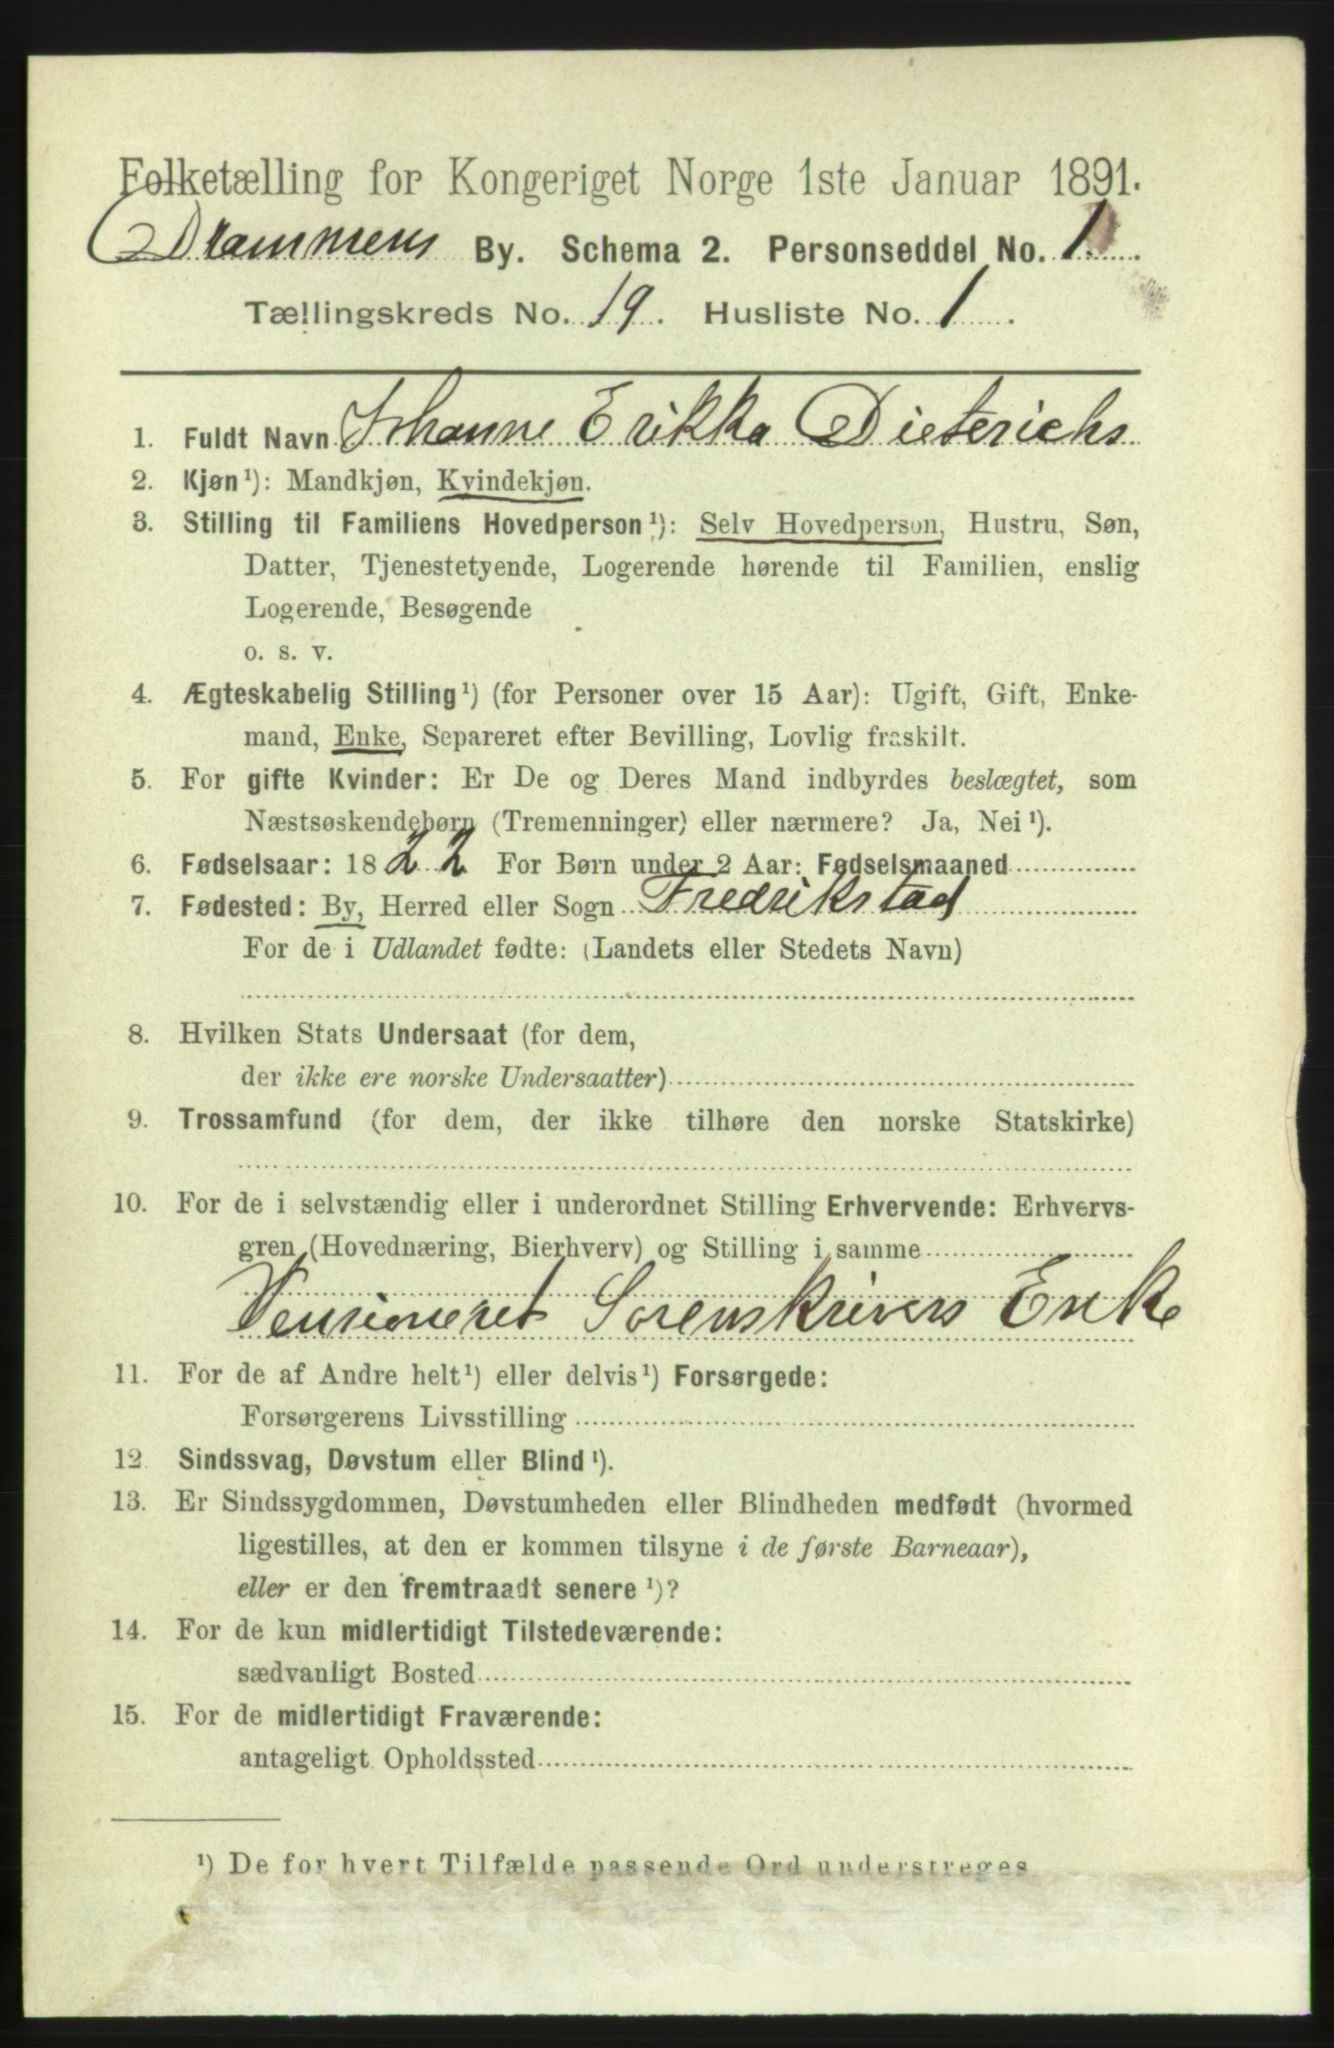 Folketælling for Kongeriget Norge 1ste Januar 1891.
Drammens By. Schema 2. Personseddel No. 1
Tællingskreds No. 19. Husliste No. 1.
1. Fuldt Navn Johanne Erikka Dieterichs
2. Kjøn¹): Mandkjøn, Kvindekjøn.
3. Stilling til Familiens Hovedperson¹): Selv Hovedperson, Hustru, Søn,
Datter, Tjenestetyende, Logerende hørende til Familien, enslig
Logerende, Besøgende
o. s. v.
4. Ægteskabelig Stilling¹) (for Personer over 15 Aar): Ugift, Gift, Enke-
mand, Enke, Separeret efter Bevilling, Lovlig fraskilt.
5. For gifte Kvinder: Er De og Deres Mand indbyrdes beslægtet, som
Næstsøskendebørn (Tremenninger) eller nærmere? Ja, Nei¹).
6. Fødselsaar: 1822 For Børn under 2 Aar: Fødselsmaaned
7. Fødested: By, Herred eller Sogn Fredrikstad
For de i Udlandet fødte: (Landets eller Stedets Navn)
8. Hvilken Stats Undersaat (for dem,
der ikke ere norske Undersaatter)
9. Trossamfund (for dem, der ikke tilhøre den norske Statskirke)
10. For de i selvstændig eller i underordnet Stilling Erhvervende: Erhvervs-
gren (Hovednæring, Bierhverv) og Stilling i samme
Pensioneret Sorenskrivers Enke
11. For de af Andre helt¹) eller delvis¹) Forsørgede:
Forsørgerens Livsstilling
12. Sindssvag, Døvstum eller Blind¹).
13. Er Sindssygdommen, Døvstumheden eller Blindheden medfødt (hvormed
ligestilles, at den er kommen tilsyne i de første Barneaar),
eller er den fremtraadt senere¹)?
14. For de kun midlertidigt Tilstedeværende:
sædvanligt Bosted
15. For de midlertidigt Fraværende:
antageligt Opholdssted
¹) De for hvert Tilfælde passende Ord understreges